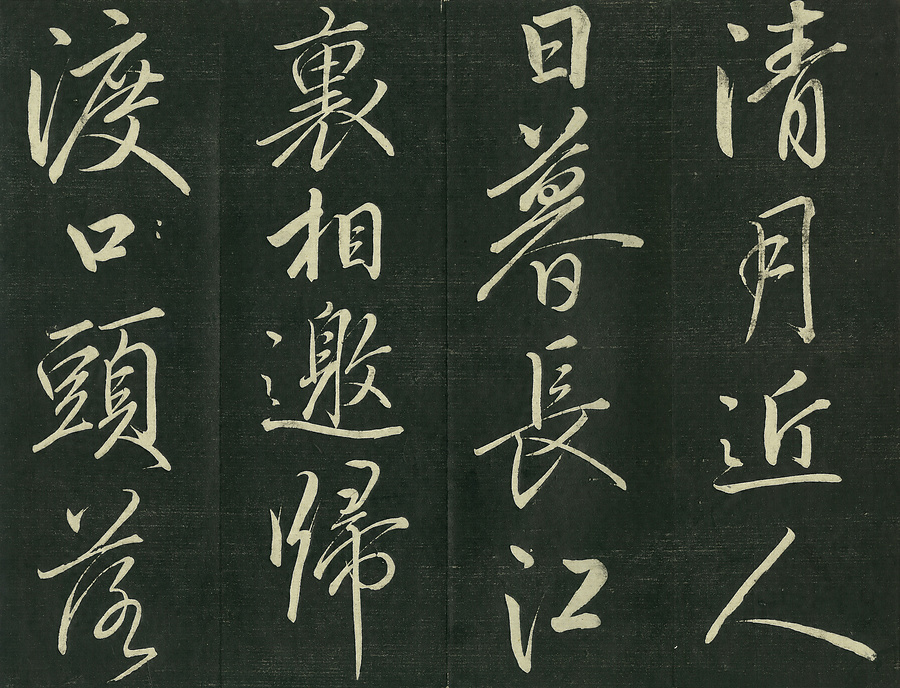 清月近人
日暮長江
裏相邀歸
渡口頭落